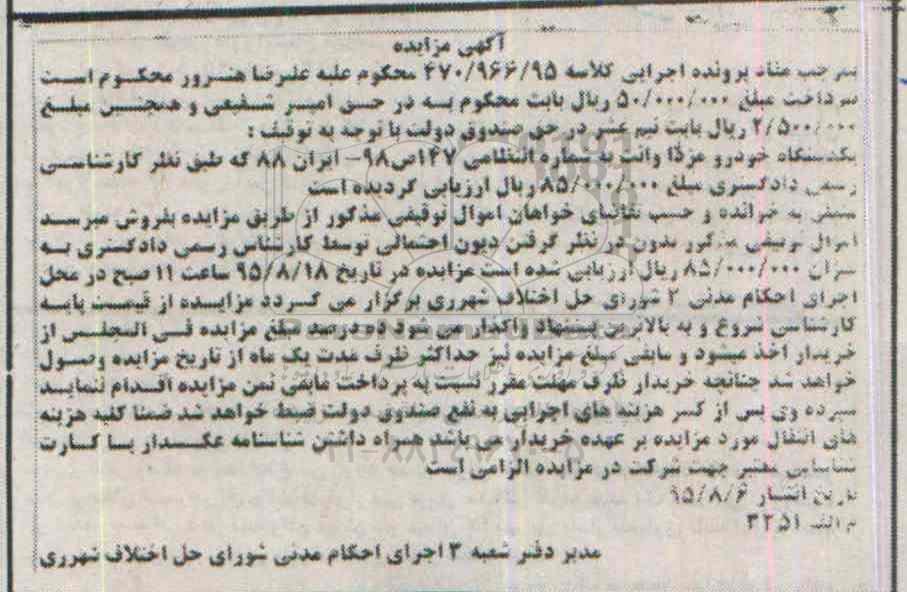 آگهی مزایده
بموجب مفاد پرونده اجرایی کلاسه ۴۷۰/۹۶۶/۹۵ محکوم علیه علیرضا هنرور محکوم است
بپرداخت مبلغ ۵۰/۰۰۰/۰۰۰ ریال بابت محکوم به در حق امیر شفیعی و همچنین مبلغ
۲/۵۰۰/۰۰۰ ریال بابت نیم عشر در حق صندوق دولت با توجه به توقیف :
یکدستگاه خودرو مزدا وانت به شماره انتظامی ۱۴۷ص۹۸- ایران ۸۸ که طبق نظر کارشناسی
رسمی دادگستری مبلغ ۸۵/۰۰۰/۰۰۰ ریال ارزیابی گردیده است
متعلق به خوانده و حسب تقاضای خواهان اموال توقیفی مذکور از طریق مزایده بفروش میرسد
اموال توقیفی مذکور بدون در نظر گرفتن دیون احتمالی توسط کارشناس رسمی دادگستری به
میزان ۸۵/۰۰۰/۰۰۰ ریال ارزیابی شده است مزایده در تاریخ ۹۵/۸/۱۸ ساعت ۱۱ صبح در محل
اجرای احکام مدنی ۳ شورای حل اختلاف شهرری برگزار می گردد مزایده از قیمت پایه
کارشناسی شروع و به بالاترین پیشنهاد واگذار می شود ده درصد مبلغ مزایده فی المجلس از
خریدار اخذ میشود و مابقی مبلغ مزایده نیز حداکثر ظرف مدت یک ماه از تاریخ مزایده وصول
خواهد شد چنانچه خریدار ظرف مهلت مقرر نسبت به پرداخت مابقی ثمن مزایده اقدام ننماید
سپرده وی پس از کسر هزینه های اجرایی به نفع صندوق دولت ضبط خواهد شد ضمنا کلیه هزینه
های انتقال مورد مزایده بر عهده خریدار می باشد همراه داشتن شناسنامه عکسدار یا کارت
شناسایی معتبر جهت شرکت در مزایده الزامی است
تاریخ انتشار ۹۵/۸/۶
م الف ۳۲۵۱
مدیر دفتر شعبه ۳ اجرای احکام مدنی شورای حل اختلاف شهرری